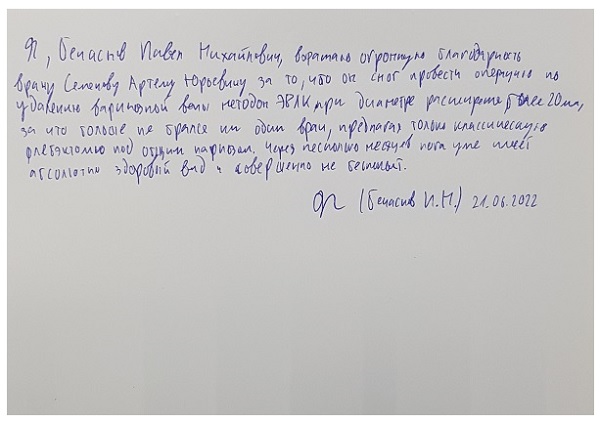 Я, Бечаснов Павел Михайлович, выражаю огромную благодарность
врачу Семенову Артему Юрьевичу за то, что он смог провести операцию по
удалению варикозной вены методом ЭВЛК при диаметре расширения более 20мм,
за что больше не брался ни один врач, предлагая только классическую
флебэктомию под общим наркозом. Через несколько месяцев нога уже имеет
абсолютно здоровый вид и совершенно не беспокоит.
(Бечаснов П.М.) 21.06.2022